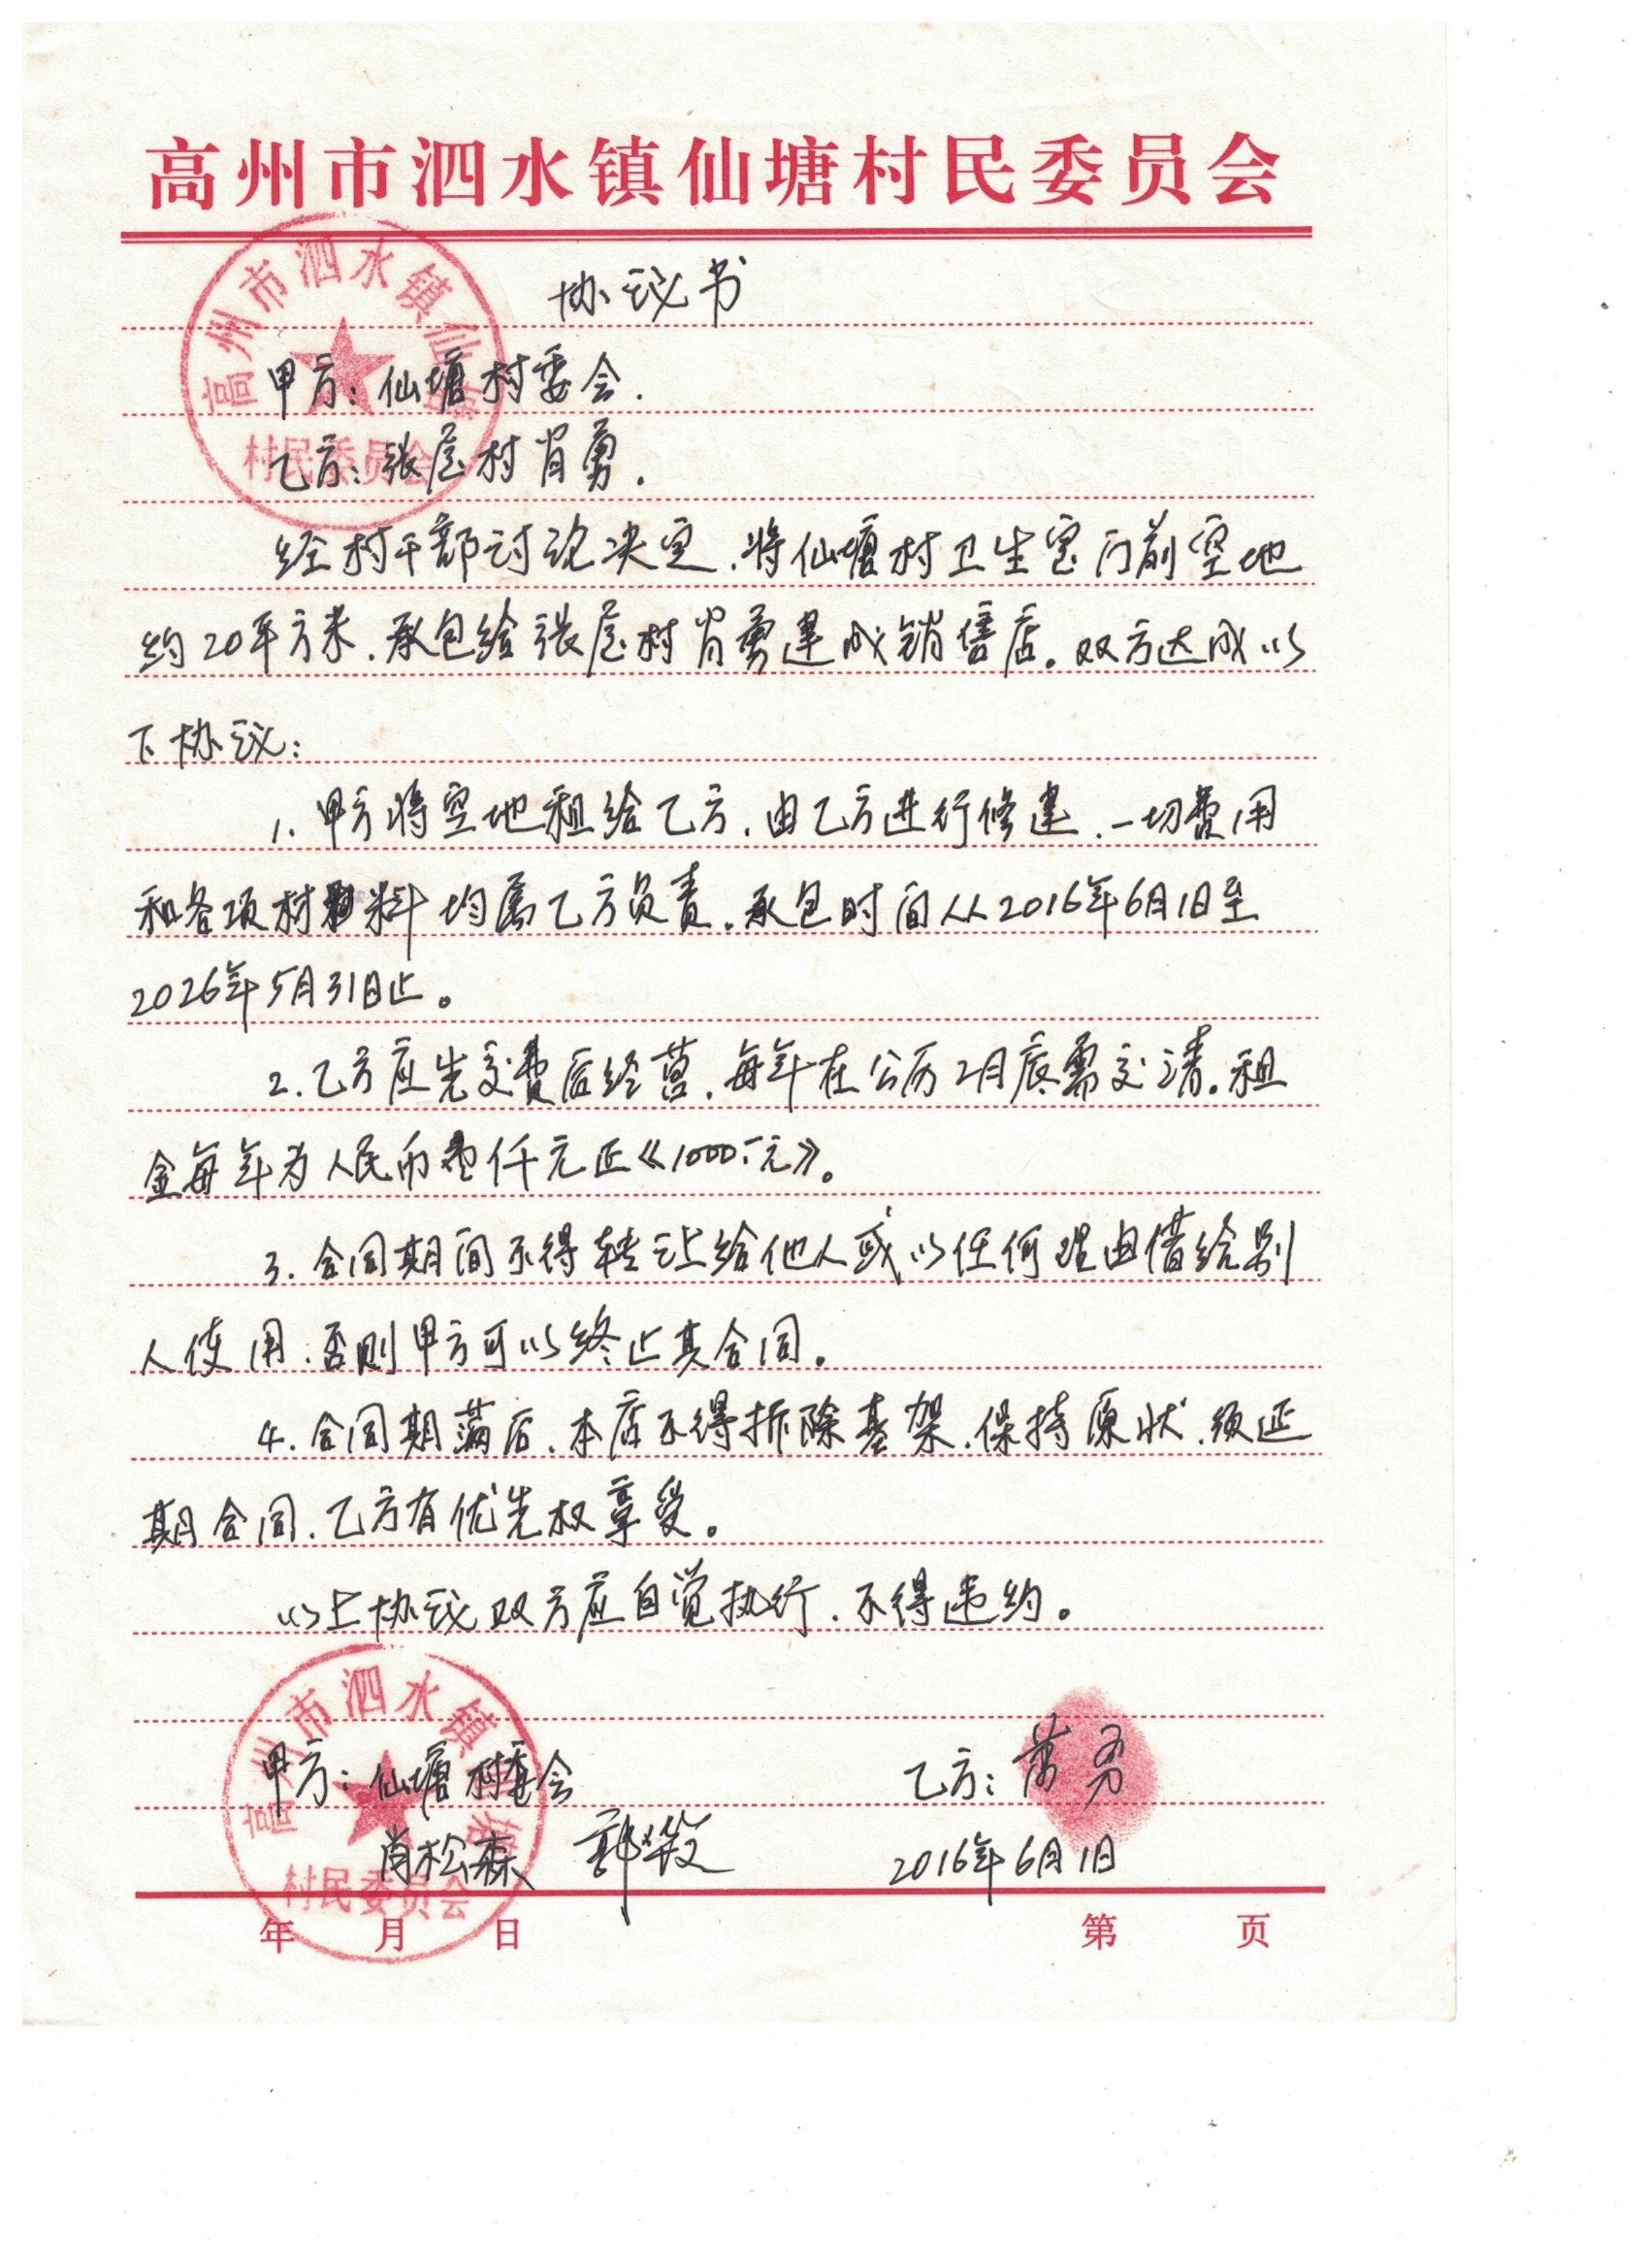 高州市泗水镇仙塘村民委员会
协议书
甲方：仙塘村委会.
乙方：张屋村肖勇.
经村干部讨论决定.将仙塘村卫生室门前空地
约20平方米.承包给张屋村肖勇建成销售店。双方达成以
下协议：
1.甲方将空地租给乙方.由乙方进行修建.一切费用
和各项材料均属乙方负责.承包时间从2016年6月1日至
2026年5月31日止。
2.乙方应先交费后经营.每年在公历2月底需交清。租
金每年为人民币壹仟元正《1000.元》。
3.合同期间不得转让给他人或以任何理由借给别
人使用.否则甲方可以终止其合同。
4.合同期满后.本店不得拆除基架.保持原状.须延
期合同.乙方有优先权享受。
以上协议双方应自觉执行.不得违约。
甲方：仙塘村委会
乙方：萧勇
肖松森
2016年6月1日
年 月 日
第 页
高州市泗水镇仙塘
村民委员会
高州市泗水镇仙塘
村民委员会